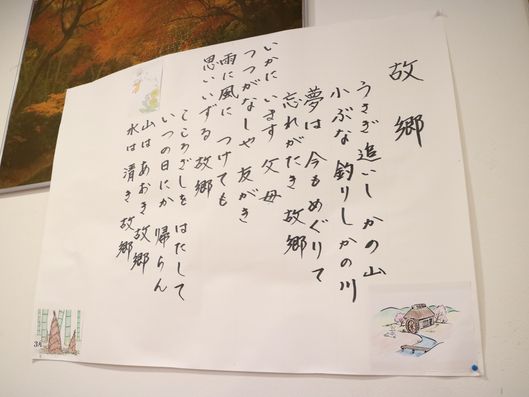 故郷
うさぎ追いし かの山
小ぶな釣りし かの川
夢は 今も めぐりて
忘れがたき 故郷
いかに います 父母
つつがなしや 友がき
雨に風に つけても
思いいずる 故郷
こころざしを はたして
いつの日にか 帰らん
山は あおき 故郷
水は 清き 故郷
3月